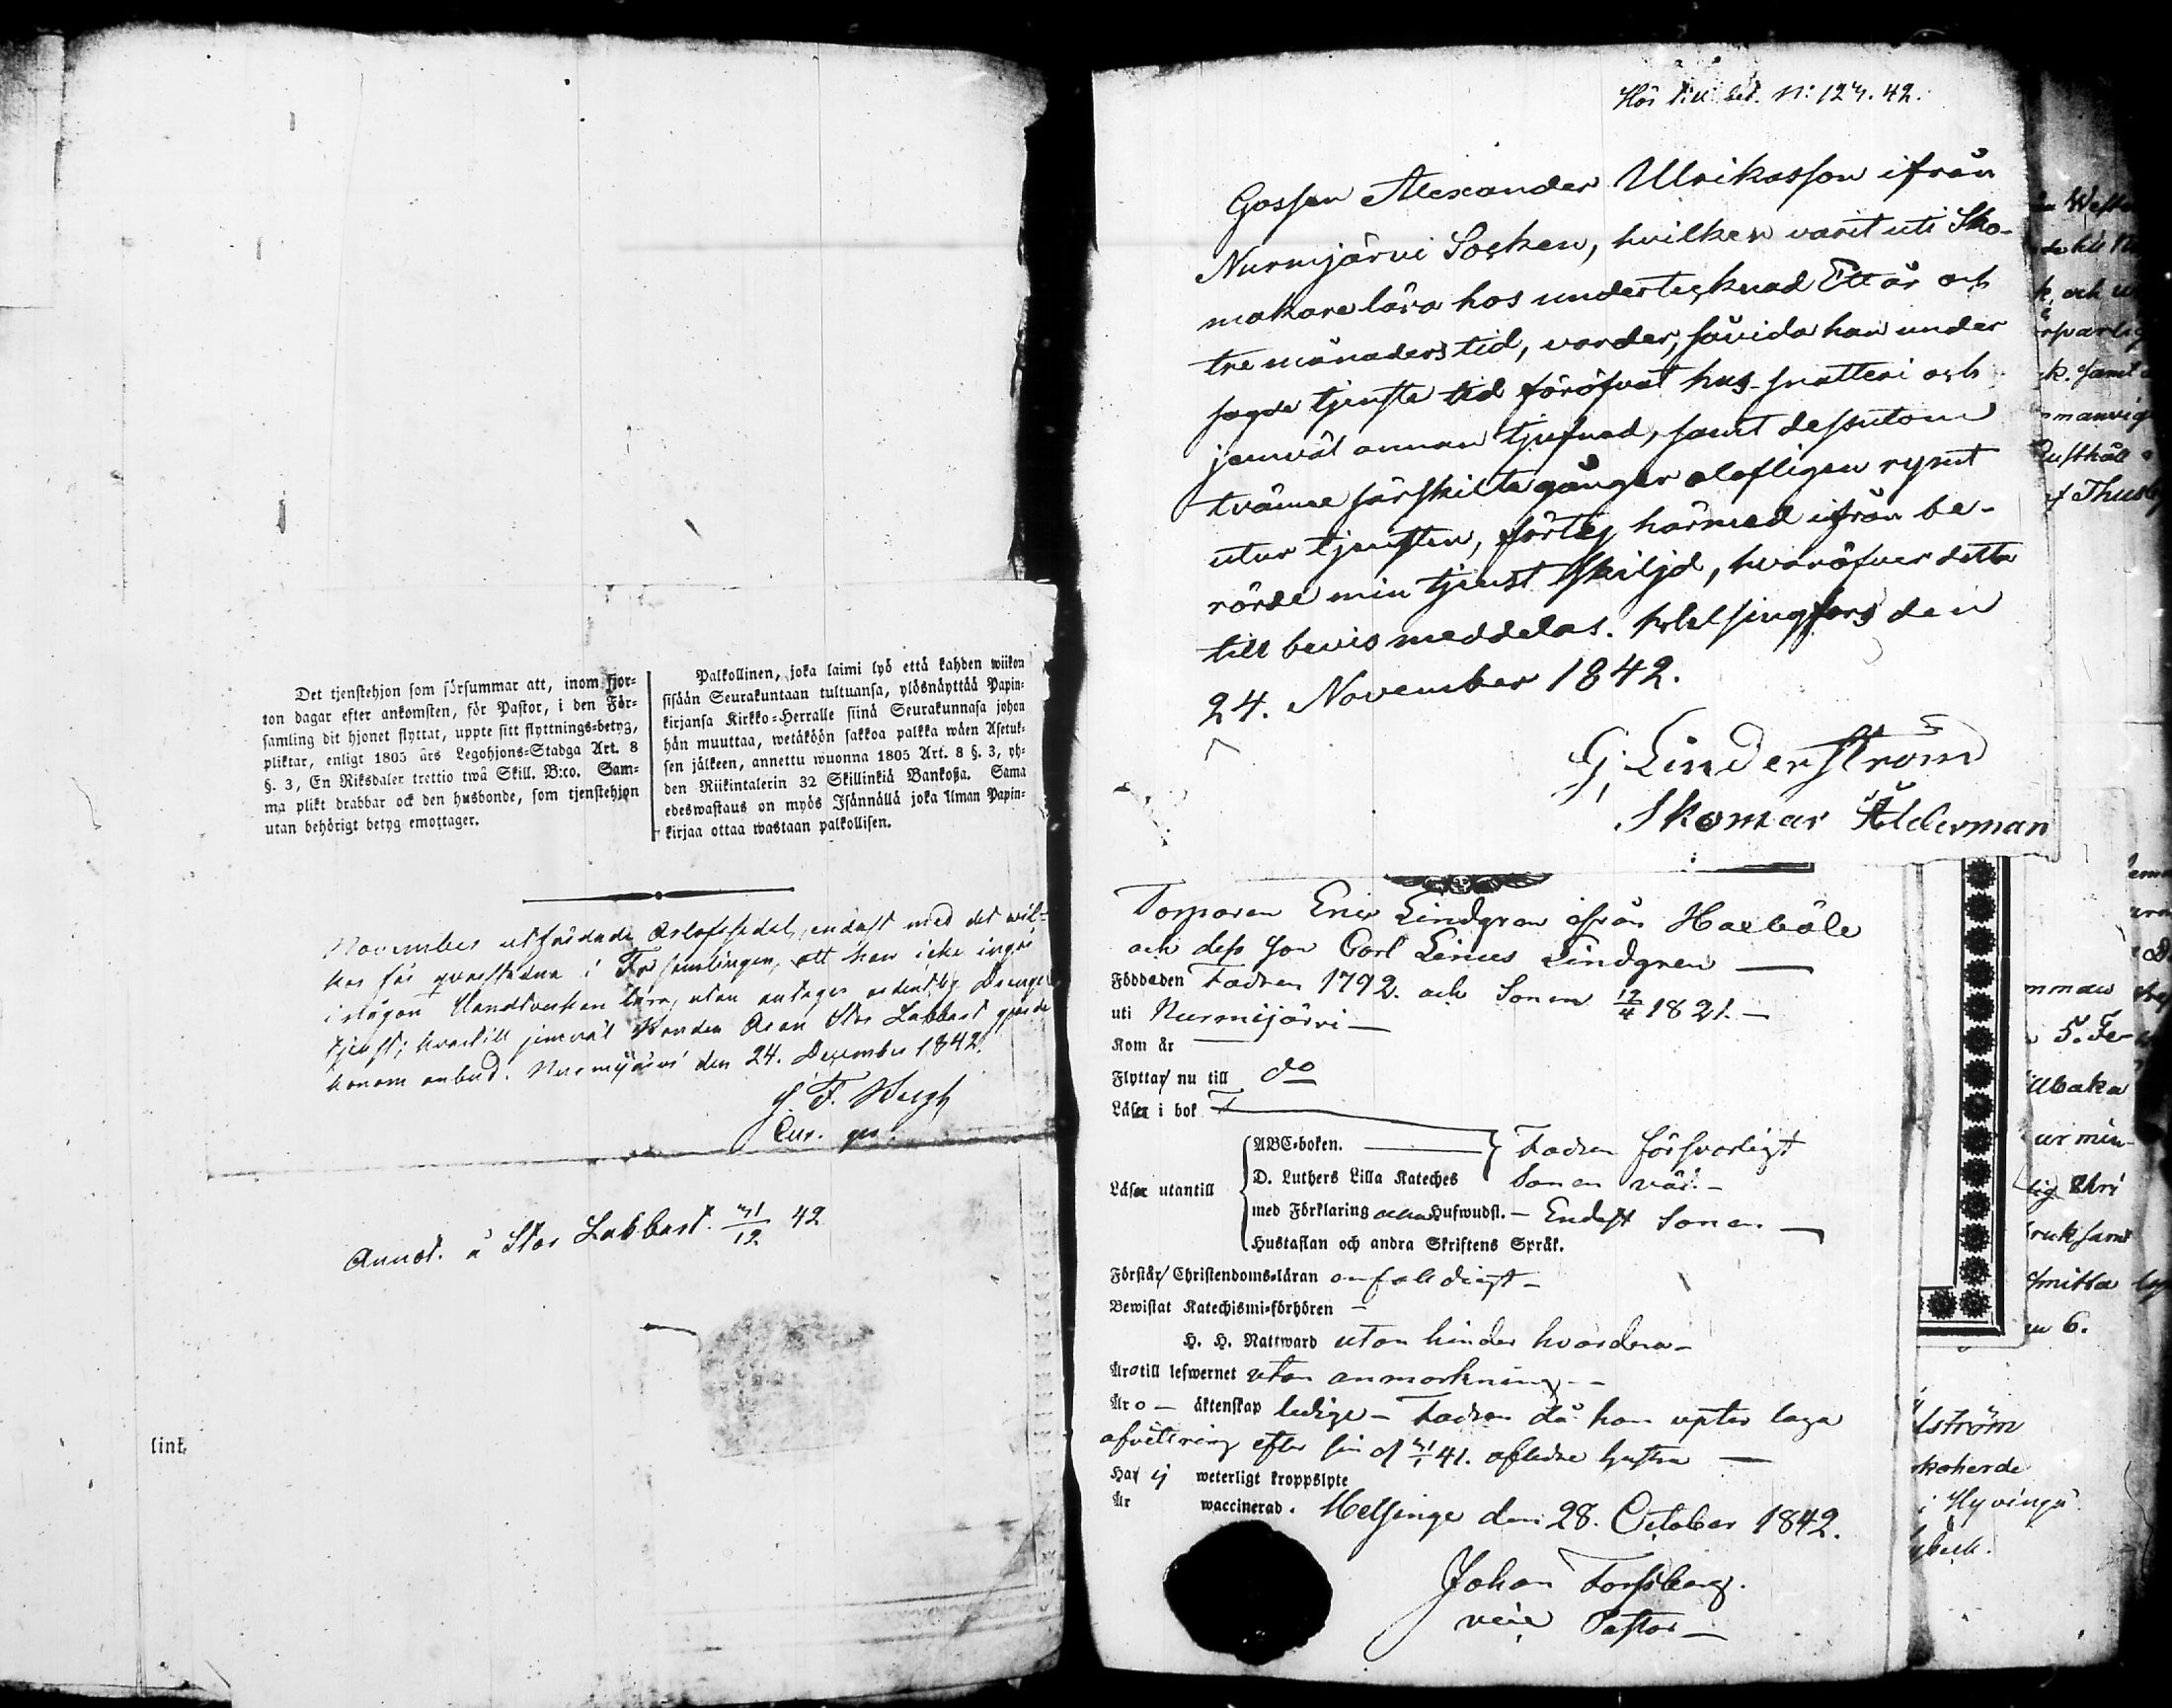 Det tjenstehjon som försummar att, inom fjor-
ton dagar efter ankomsten, för Pastor, i den För-
samling dit hjonet flyttat, uppte sitt flyttnings-betyg,
pliktar, enligt 1805 års Legohjons-Stadga Art. 8
§. 3, En Riksdaler trettio twå Skill. B:co. Sam-
ma plikt drabbar ock den husbonde, som tjenstehjon
utan behörigt betyg emottager.
Palkollinen, joka laimi lyö että kahden wiikon
sisään Seurakuntaan tultuansa, ylösnäyttää Papin-
kirjansa Kirkko-Herralle siinä Seurakunnasa johon
hän muuttaa, wetäköön sakkoa palkka wäen Asetuk-
sen jälkeen, annettu wuonna 1805 Art. 8 §. 3, yh-
den Riikintalerin 32 Skillinkiä Bankoßa. Sama
edeswastaus on myös Isännällä joka ilman Papin-
kirjaa ottaa wastaan palkollisen.
November utfärdade Orlofssedel, endast med det wil-
kor får qvarstadna i Församlingen, att han icke ingår
i någon Handtverkeri lära, utan antager ordentlig Drenge
tjenst; hvartill jemväl Bonden Stor Labbart gjorde
honom anbud. Nurmijärvi den 24. December 1842.
Annot. å Stor Labbart. 31/12 42
link
Hör till bet. N: 123. 42.
Gossen Alexander Ulrikasson ifrån
Nurmjärvi Socken, hvilken varit uti Sko-
makare lära hos undertecknad Ett år och
tre månaders tid, varder, såvida han under
sagde tjenste tid föröfvat hus-snatteri och
jemväl annan tjufnad, samt dessutom
tvänne särskilta gånger olofligen rymt
utur tjensten, förtij härmed ifrån be-
rörde min tjenst skiljd, hvaröfver detta
till bevis meddelas. Helsingfors den
24. November 1842.
G. Linderström
Skomar Ålderman
Torparen Eric Lindgren ifrån Haxböle
och dess son Carl Linus Lindgren —
Födda den Fadren 1792. och Sonen 12/4 1821. —
uti Nurmijärvi —
Kom år —
Flytta nu till do
Läsa i bok
ABC-boken. — Fadren försvarligt
D. Luthers Lilla Kateches Sonen väl. —
Läsa utantill
med Förklaring Hufwudst. — Endast Sonen. —
Hustaflan och andra Skriftens Språk.
Förstå Christendoms-läran enfaldigt —
Bewistat Katechismi-förhören —
H. H. Nattward utan hinder hvardera —
Äro till lefwernet utan anmärkning —
Äro — äktenskap ledige — Fadren då han uptes laga
afvittring efter sin d. 31/1 41. aflidne hustru —
Ha ej weterligt kroppslyte
Är waccinerad. Helsinge den 28. October 1842.
Johan Forssberg.
vice Pastor —
5. Fe-
tillbaka
ur min
lström
koherde
i Hyvinge